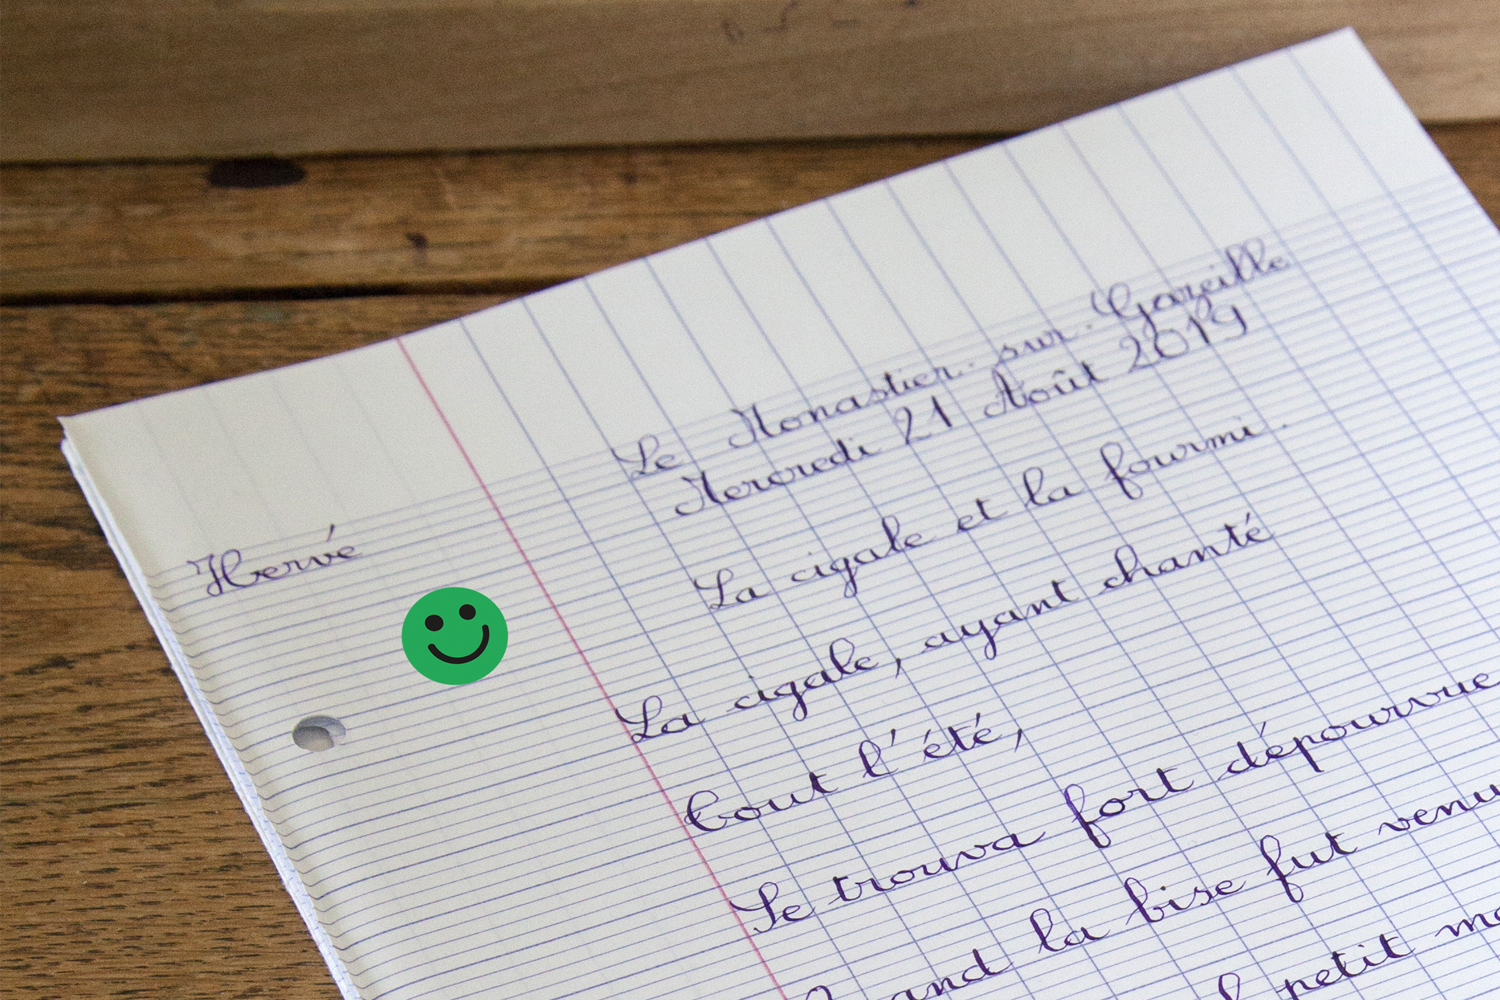 Le Monastier-sur-Gazeille
Mercredi 21 Août 2019
Hervé
La cigale et la fourmi.
La cigale, ayant chanté
Tout l'été,
Se trouva fort dépourvue
and la bise fut venu
petit